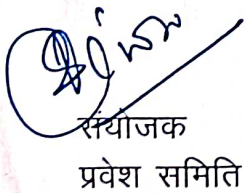 संयोजक
प्रवेश समिति